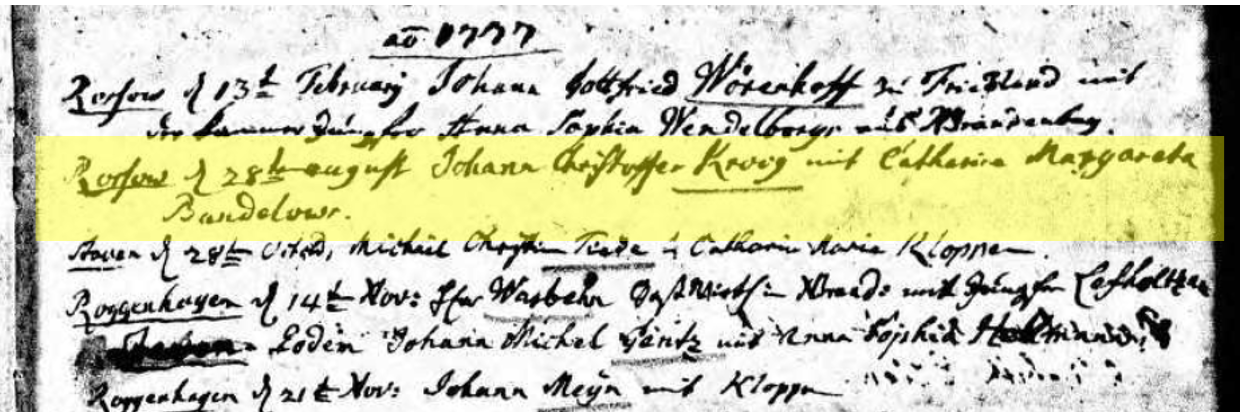 aõ 1777
Rossow d 13t Februarij Johann Gottfried Wörenhoff zu Friedland mit
der Jungfer Anna Sophia Wendelborgs aus Brandenburg.
Rossow d 28t august Johann Christoffer Kroog mit Catharina Margareta
Bandelows.
Staven d 28t Octob, Michael Christian Tiede Catharin Maria Kloppen
Roggenhagen d 14t Nov: Herr Warbehn in Brand: mit Jungfer
Johann Michel Gentz mit Anna Sophia
Roggenhagen d 21t Nov: Johann Meyn mit Kloppen